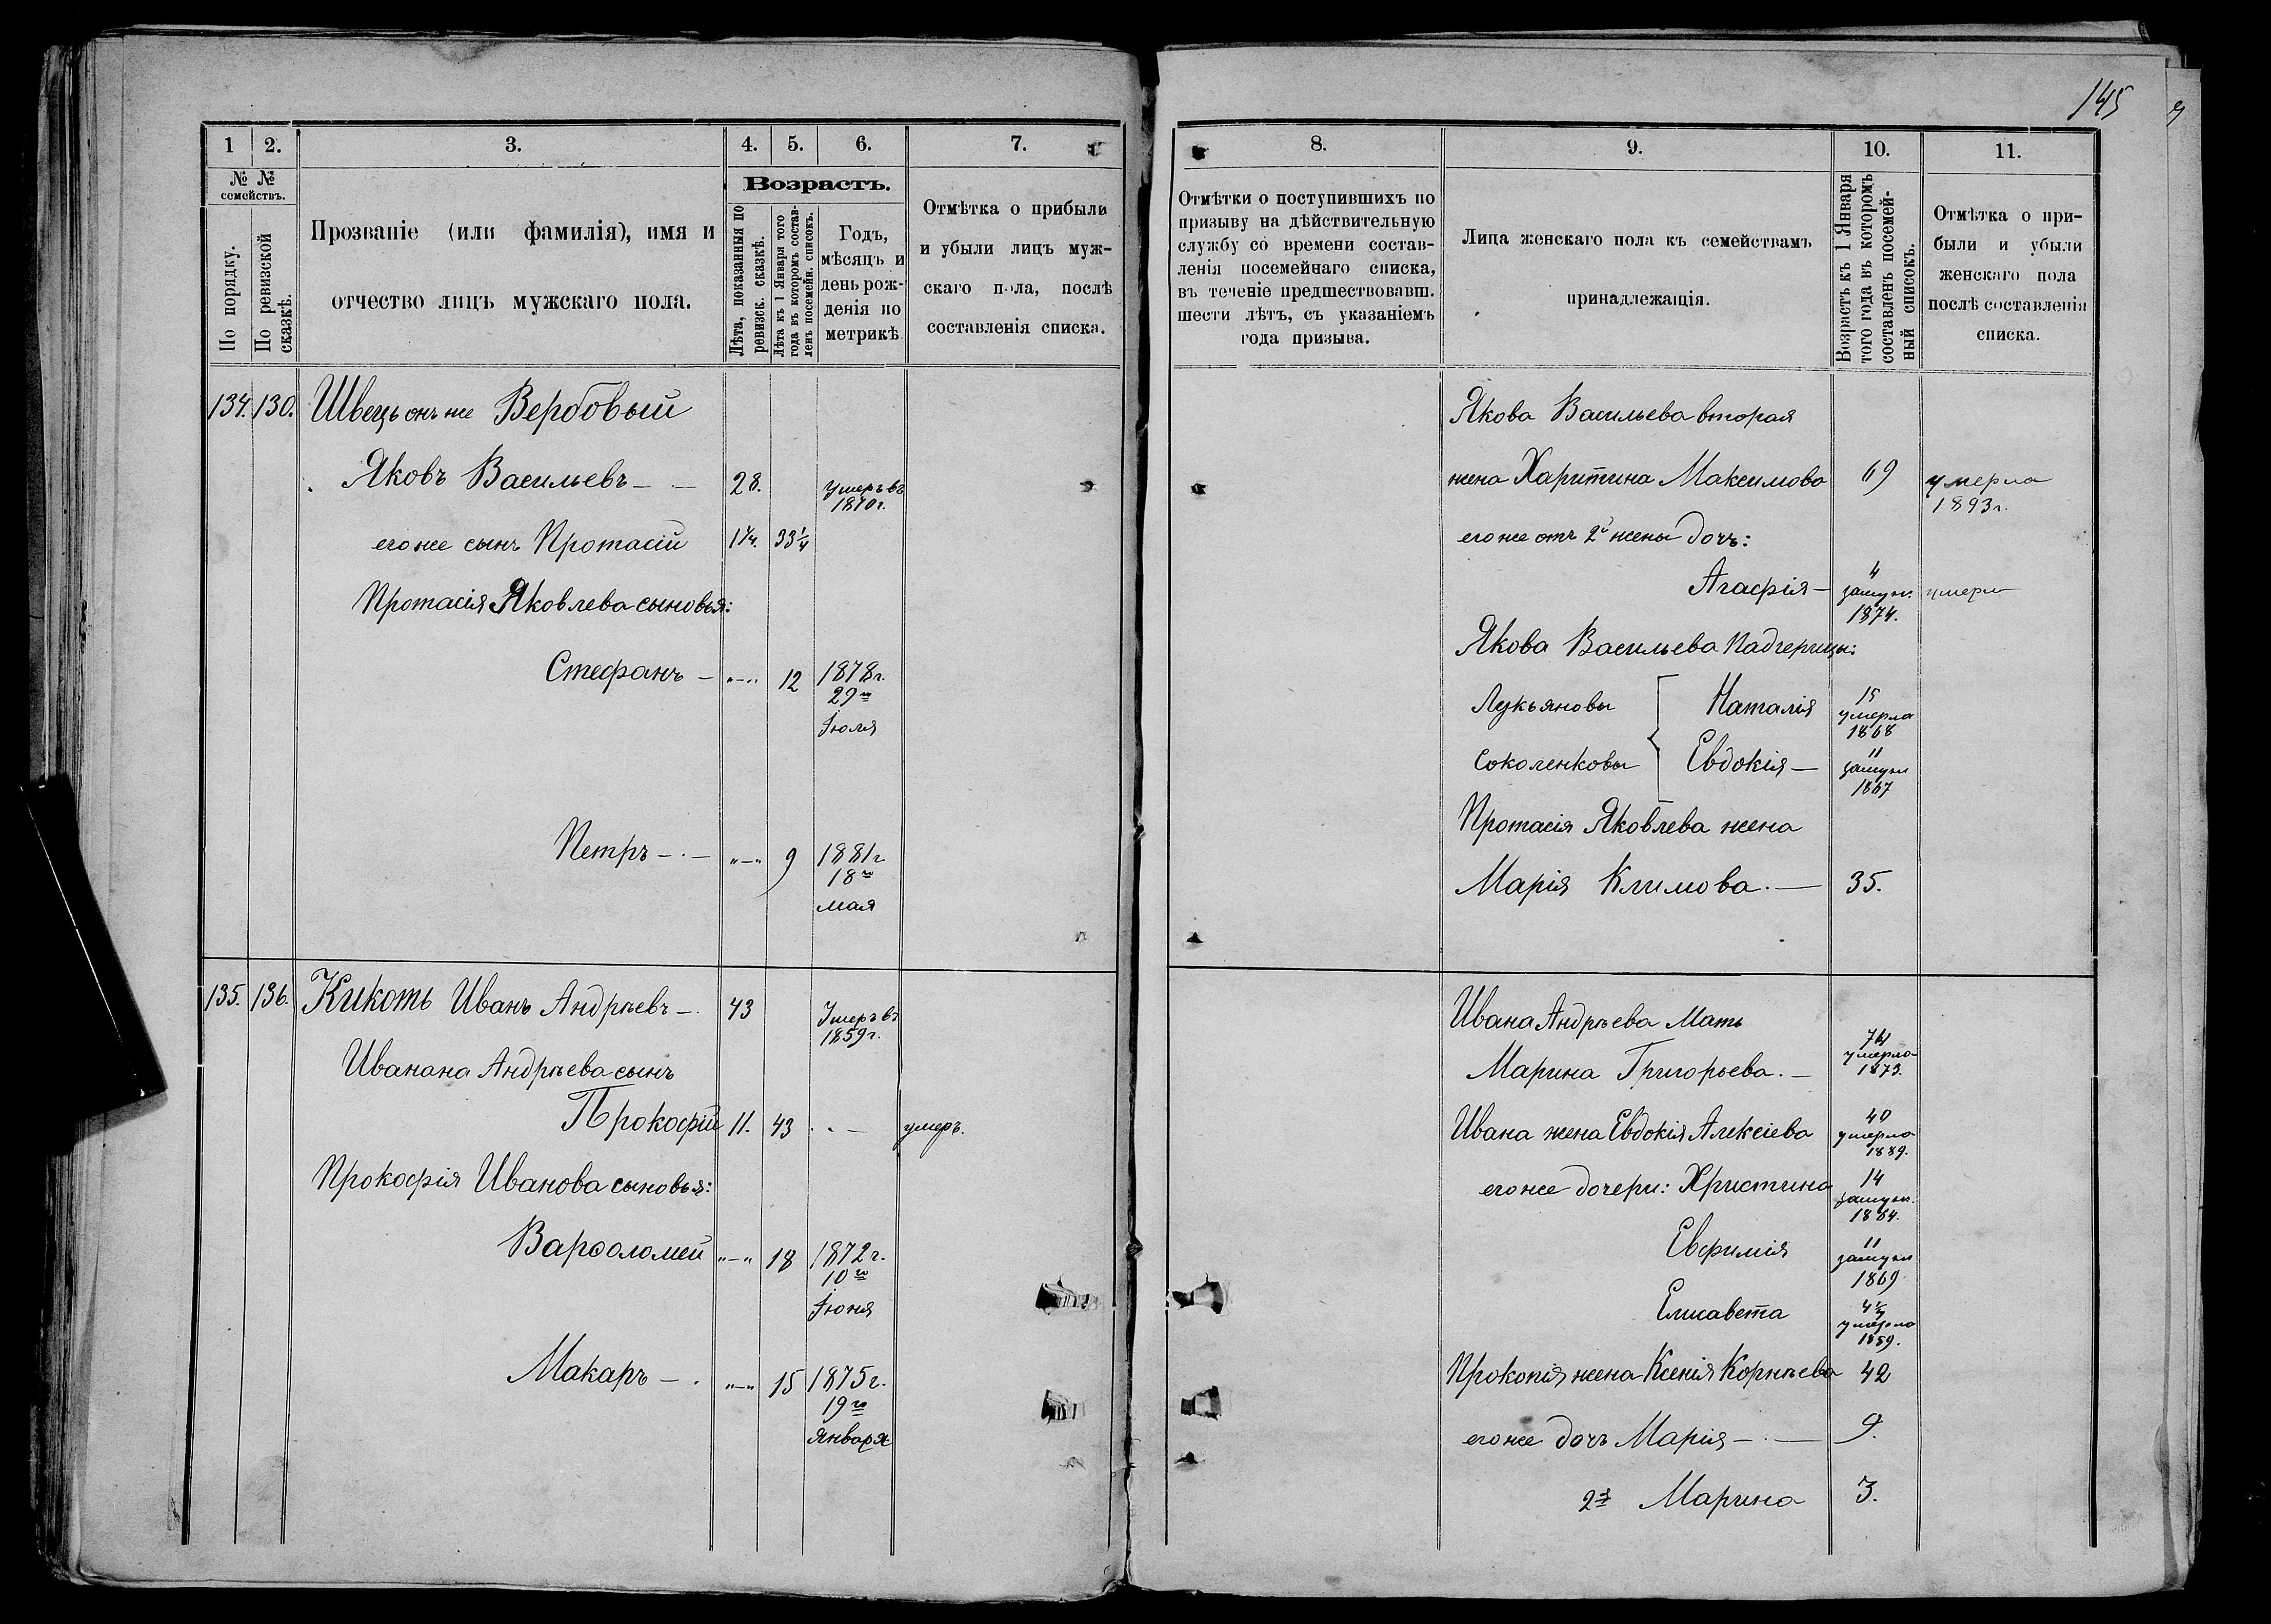 145
1
2.
3.
4.
5.
6.
7.
№ №
семействъ.
По порядку.
По ревизской
сказкѣ.
Прозваніе (или фамилія), имя и
отчество лицъ мужскаго пола.
Возрастъ.
Лѣта, показанныя по
ревизск. сказкѣ.
Лѣта къ 1 Января того
года въ которомъ состав-
ленъ посемейн. списокъ.
Годъ,
мѣсяцъ и
день рож-
денія по
метрикѣ
Отмѣтка о прибыли
и убыли лицъ муж-
скаго пола, послѣ
составленія списка.
134. 130. Швець онъ же Вербовый
Яковъ Васильевъ — — 28. умеръ въ
1870 г.
его же сынъ Протасій 1 1/4. 33 1/4
Протасія Яковлева сыновья:
Стефанъ — "—" 12 1878 г.
29го
Іюля
Петръ — . — "—" 9 1881 г
18го
мая
135. 136. Кикоть Иванъ Андрѣевъ — 43 Умеръ въ
1859 г.
Иванана Андрѣева сынъ
Прокофій 11. 43 . . — умеръ.
Прокофія Иванова сыновья:
Варѳоломей "—" 18 1872 г.
10го
Іюня
Макаръ — . "—" 15 1875 г.
19го
Января
8.
9.
10.
11.
Отмѣтки о поступившихъ по
призыву на дѣйствительную
службу со времени состав-
ленія посемейнаго списка,
въ теченіе предшествовавш.
шести лѣтъ, съ указаніемъ
года призыва.
Лица женскаго пола къ семействамъ
принадлежащія.
Возрастъ къ 1 Января
того года въ которомъ
составленъ посемей-
ный списокъ.
Отмѣтка о при-
были и убыли
женскаго пола
послѣ составленія
списка.
Якова Васильева вторая
жена Харитина Максимова 69 умерла
1893 г.
его же отъ 2й жены дочъ:
Агафія — 4
замуж. умерла
1874.
Якова Васильева Падчерицы:
Лукьяновы Наталія 15
умерла
1868
Соколенковы Евдокія — 11
замуж
1867
Протасія Яковлева жена
Марія Климова. — 35.
Ивана Андрѣева Мать
Марина Григорьева. — 74
умерла
1873.
Ивана жена Евдокія Алексіева 40
умерла
1889.
его же дочери: Христина 14
замуж.
1864.
Евфимія 11
замуж
1869
Елисавета 4 1/2
умерла
1859.
Прокопія жена Ксенія Корнѣева 42
его же дочъ Марія — . — 9.
2я Марина 3.